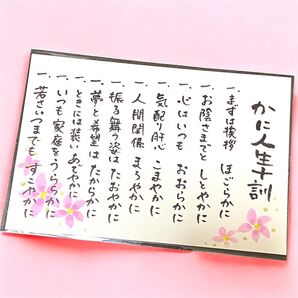 かに人生十訓
一、まずは挨拶 ほがらかに
一、お陰さまでと しとやかに
一、心はいつも おおらかに
一、気配り肝心 こまやかに
一、人間関係 まろやかに
一、振る舞う姿は たおやかに
一、夢と希望は たからかに
一、ときには装い あでやかに
一、いつも家庭をうららかに
一、若さいつまでも すこやかに